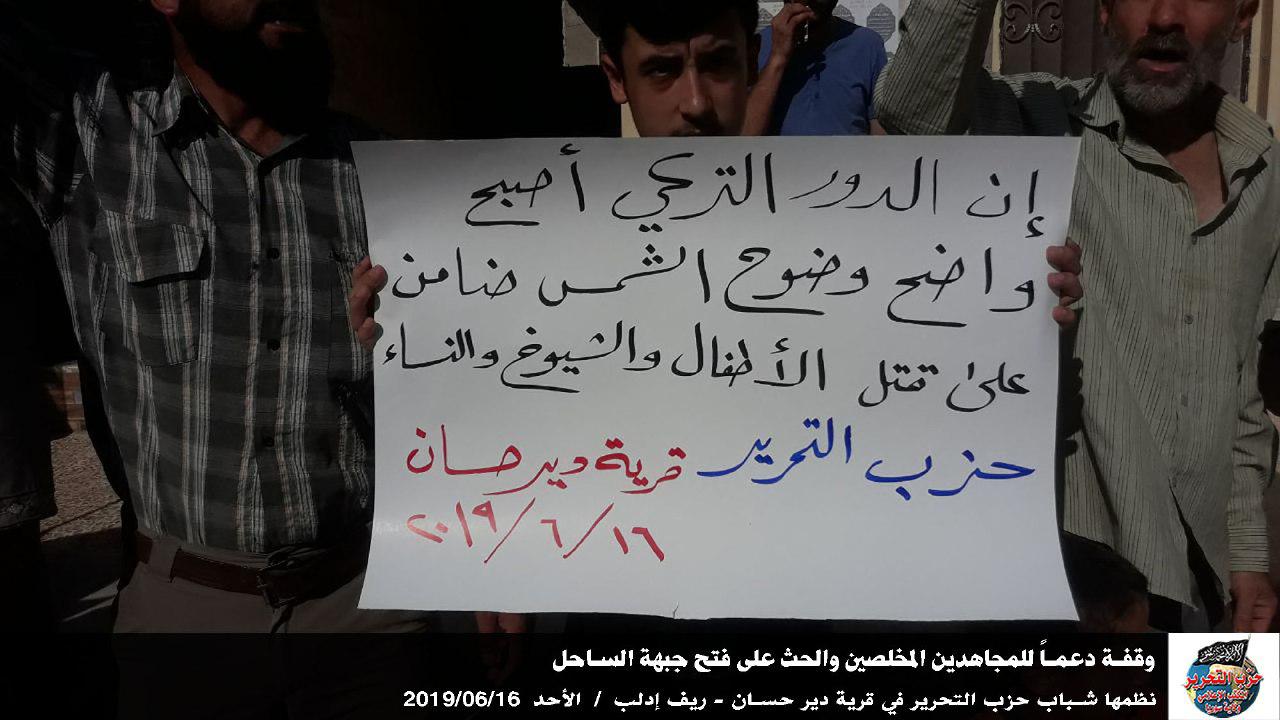 إن الدور التركي أصبح
واضح وضوح الشمس ضامن
على قتل الأطفال والشيوخ والنساء
حزب التحرير قرية دير حسان
٢٠١٩/٦/١٦
وقفة دعماً للمجاهدين المخلصين والحث على فتح جبهة الساحل
نظمها شباب حزب التحرير في قرية دير حسان - ريف إدلب / الأحد 2019/06/16
حزب التحرير
المكتب الإعلامي
ولاية سوريا